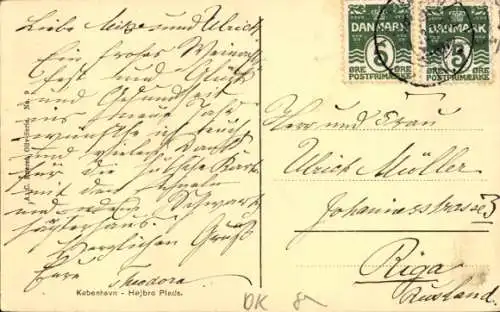 Liebe Meize und Ulrich,
Ein frohes Weinach
fest und Glück
und Gesundheit
ins neue Jahr
wünsche ich Euch
und vielen Dank
für die hübsche Karte
mit den
und Schwarz
häupterhaus.
Herzlichen Gruß
Eure Theodora.
København - Højbro Plads.
DANMARK
5
ØRE ØRE
POSTFRIMÆRKE
DANMARK
5
ØRE ØRE
POSTFRIMÆRKE
Herr und Frau
Ulrich Müller
Johannesstrasse 3
Riga
Russland.
DK